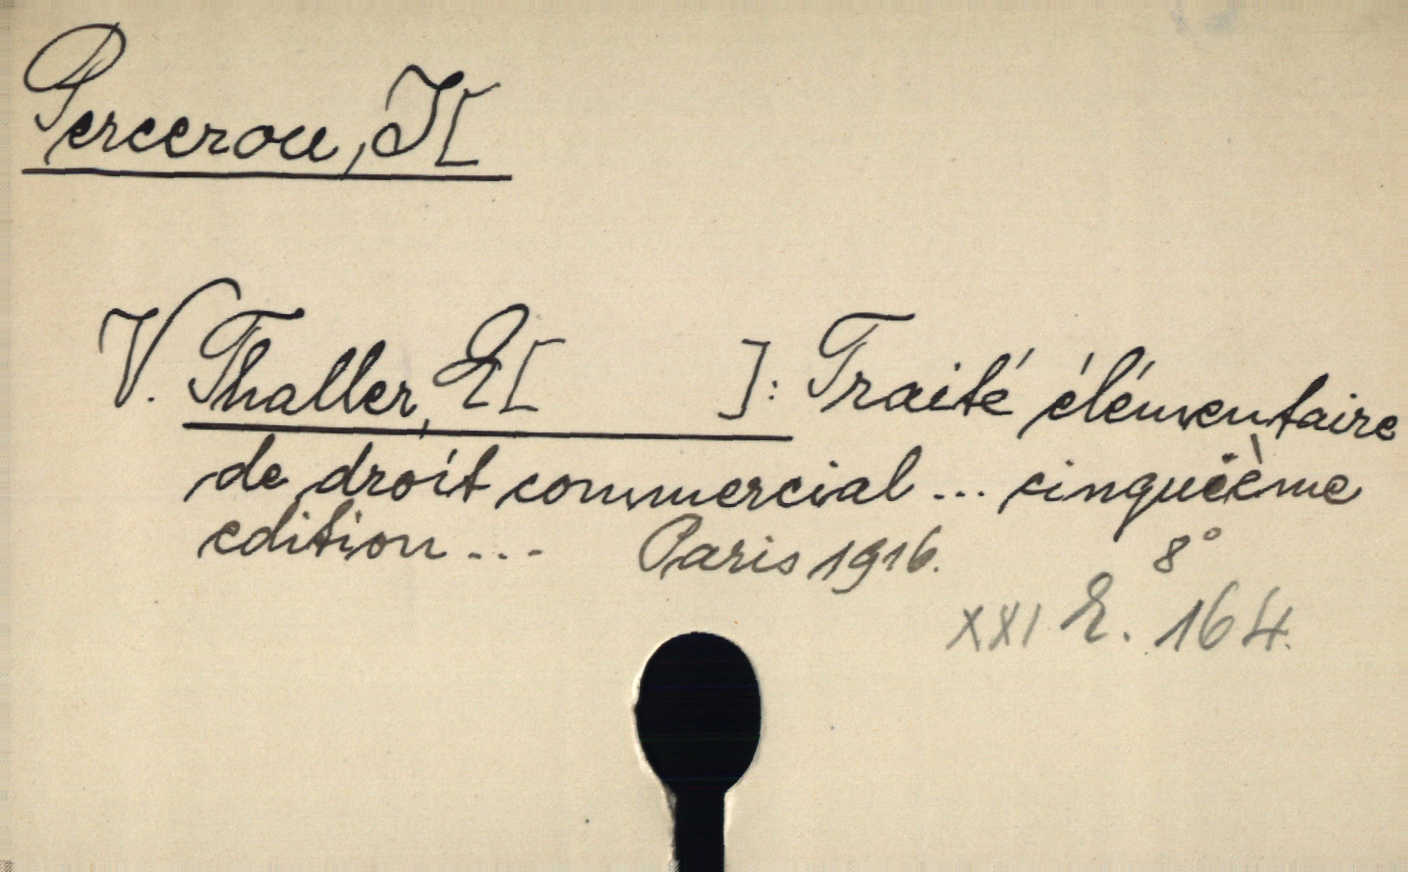 Percerou, J[
V. Thaller, E[ ]: Traité élémentaire
de droit commercial ... cinquième
edition ... Paris 1916. 8°
XXI E. 164.